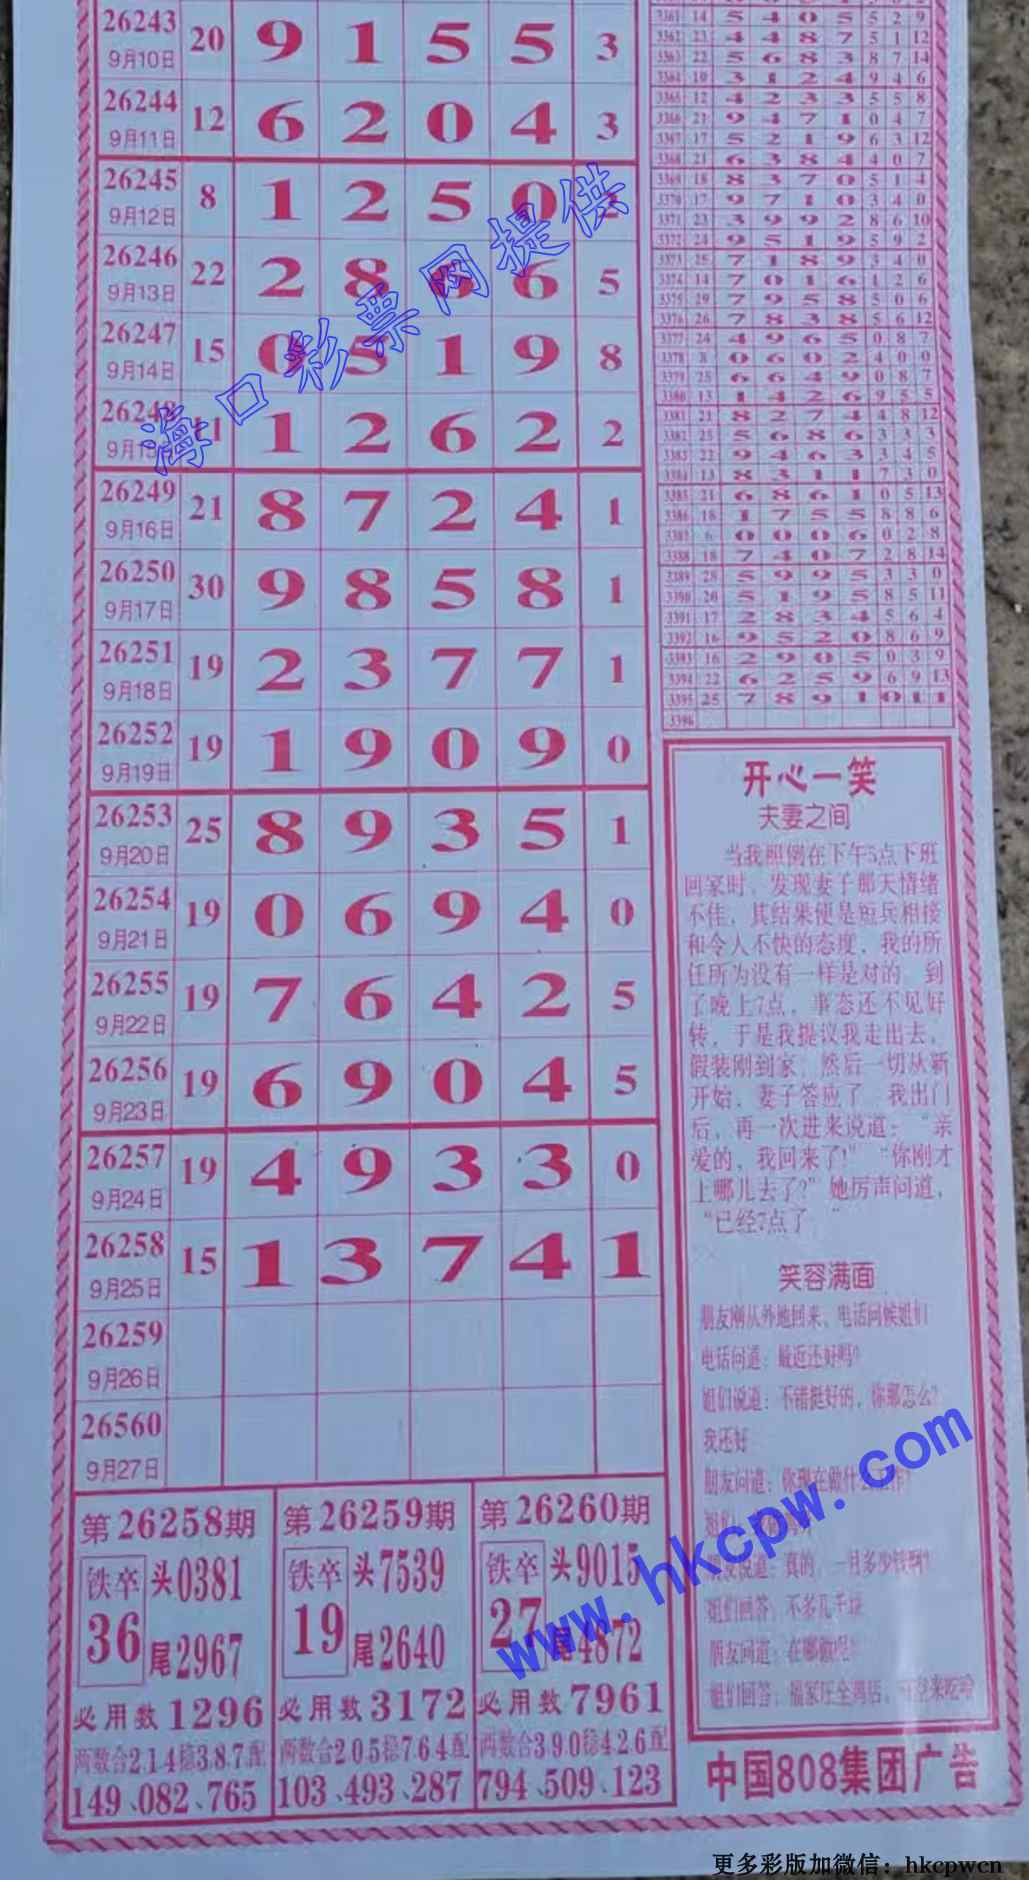 26243 20 9 1 5 5 3
9月10日
26244 12 6 2 0 4 3
9月11日
26245 8 1 2 5 0
9月12日
26246 22 2 8 6 6 5
9月13日
26247 15 0 5 1 9 8
9月14日
26248 11 1 2 6 2 2
9月15日
26249 21 8 7 2 4 1
9月16日
26250 30 9 8 5 8 1
9月17日
26251 19 2 3 7 7 1
9月18日
26252 19 1 9 0 9 0
9月19日
26253 25 8 9 3 5 1
9月20日
26254 19 0 6 9 4 0
9月21日
26255 19 7 6 4 2 5
9月22日
26256 19 6 9 0 4 5
9月23日
26257 19 4 9 3 3 0
9月24日
26258 15 1 3 7 4 1
9月25日
26259
9月26日
26560
9月27日
第26258期
铁卒 头0381
36 尾2967
必用数1296
两数合214稳387配
149、082、765
第26259期
铁卒 头7539
19 尾2640
必用数3172
两数合205稳764配
103、493、287
第26260期
铁卒 头9015
27 尾4872
必用数7961
两数合390稳426配
794、509、123
3361 14 5 4 0 5 5 2 9
3362 23 4 4 8 7 5 1 12
3363 22 5 6 8 3 8 7 14
3364 10 3 1 2 4 9 4 6
3365 12 4 2 3 3 5 5 8
3366 21 9 4 7 1 0 4 7
3367 17 5 2 1 9 6 3 12
3368 21 6 3 8 4 4 0 7
3369 18 8 3 7 0 5 1 4
3370 17 9 7 1 0 3 4 0
3371 23 3 9 9 2 8 6 10
3372 24 9 5 1 9 5 9 2
3373 25 7 1 8 9 3 4 0
3374 14 7 0 1 6 2 6
3375 29 7 9 5 8 5 0 6
3376 26 7 8 3 8 5 6 12
3377 24 4 9 6 5 0 8 7
3378 8 0 6 0 2 4 0 0
3379 25 6 6 4 9 0 8 7
3380 13 1 4 2 6 9 5 5
3381 21 8 2 7 4 4 8 12
3382 25 5 6 8 6 3 3 3
3383 22 9 4 6 3 3 4 5
3384 13 8 3 1 1 7 3 0
3385 21 6 8 6 1 0 5 13
3386 18 1 7 5 5 8 8 6
3387 6 0 0 0 6 0 2 8
3388 18 7 4 0 7 2 8 14
3389 28 5 9 9 5 3 3 0
3390 20 5 1 9 5 8 5 11
3391 17 2 8 3 4 5 6 4
3392 16 9 5 2 0 8 6 9
3393 16 2 9 0 5 0 3 9
3394 22 6 2 5 9 6 9 13
3395 25 7 8 9 1 0 1 1
3396
开心一笑
夫妻之间
当我照例在下午5点下班
回家时，发现妻子那天情绪
不佳，其结果便是短兵相接
和令人不快的态度，我的所
任所为没有一样是对的，到
了晚上7点，事态还不见好
转，于是我提议我走出去，
假装刚到家，然后一切从新
开始，妻子答应了，我出门
后，再一次进来说道：“亲
爱的，我回来了!”“你刚才
上哪儿去了?”她厉声问道，
“已经7点了”
笑容满面
朋友刚从外地回来，电话问候姐们
电话问道：最近还好吗?
姐们说道：不错挺好的，你那怎么?
我还好
朋友问道：你现在做什么工作?
朋友说道：真的，一月多少钱啊?
姐们回答：不多几千块
朋友问道：在哪做呢?
姐们回答：福家庄全鸡店，
中国808集团广告
海口彩票网提供
www.hkcpw.com
更多彩版加微信：hkcpwcn